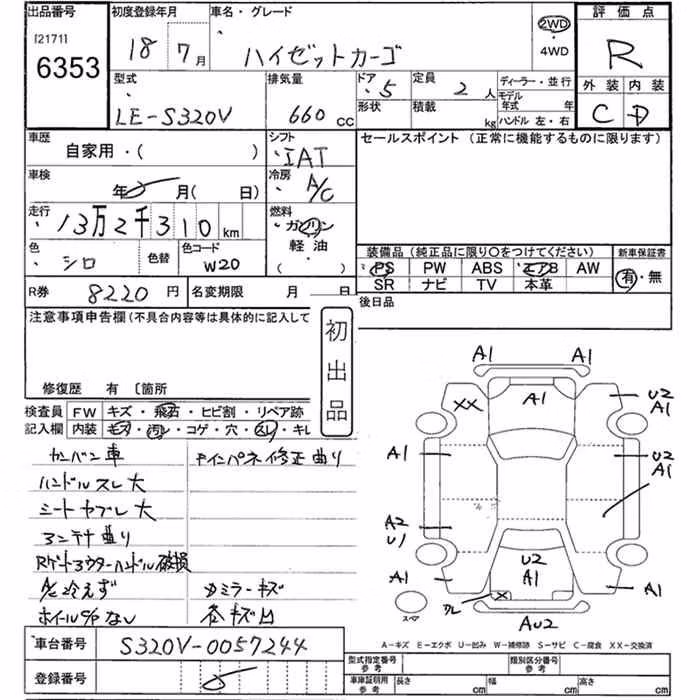 出品番号
[2171]
6353
初度登録年月
18 7月
車名・グレード
ハイゼットカーゴ
2WD
・4WD
評価点
R
型式
LE-S320V
排気量
660 CC
ドア
5
形状
定員
2 人
積載
kg
ディーラー・並行
モデル年式 年
ハンドル 左・右
外装 内装
C D
車歴
自家用・( )
シフト
IAT
セールスポイント (正常に機能するものに限ります)
車検
年 月( 日)
冷房
A/C
走行
13万2千310 km
燃料
ガソリン
・軽油
( )
色
シロ
色替
色コード
W20
装備品 (純正品に限り〇をつけてください)
新車保証書
PS PW ABS エアB AW
SR ナビ TV 本革
有・無
R券 8220 円
名変期限 月 日
後日品
注意事項申告欄 (不具合内容等は具体的に記入して
初出品
修復歴 有 〔箇所
検査員記入欄
FW キズ・飛石・ヒビ割・リペア跡
内装 コゲ・穴・スレ・キレ
カンバン車
ハンドルスレ大
シートヤブレ大
アンテナ曲り
Rゲートアウターハンドル破損
A/C冷えず
ホイールC/Pなし
インパネ修正曲り
カミラーキズ
A1 A1
XX A1 U2
A1
A1 U2
A1
A1
A2
U1
U2
A1
A1 A1
X
AU2
スペア
A-キズ E-エクボ U-凹み W-補修跡 S-サビ C-腐食 XX-交換済
車台番号 S320V-0057244
登録番号
型式指定番号 参考
類別区分番号 参考
車庫証明用 参考
長さ cm 幅 cm 高さ cm